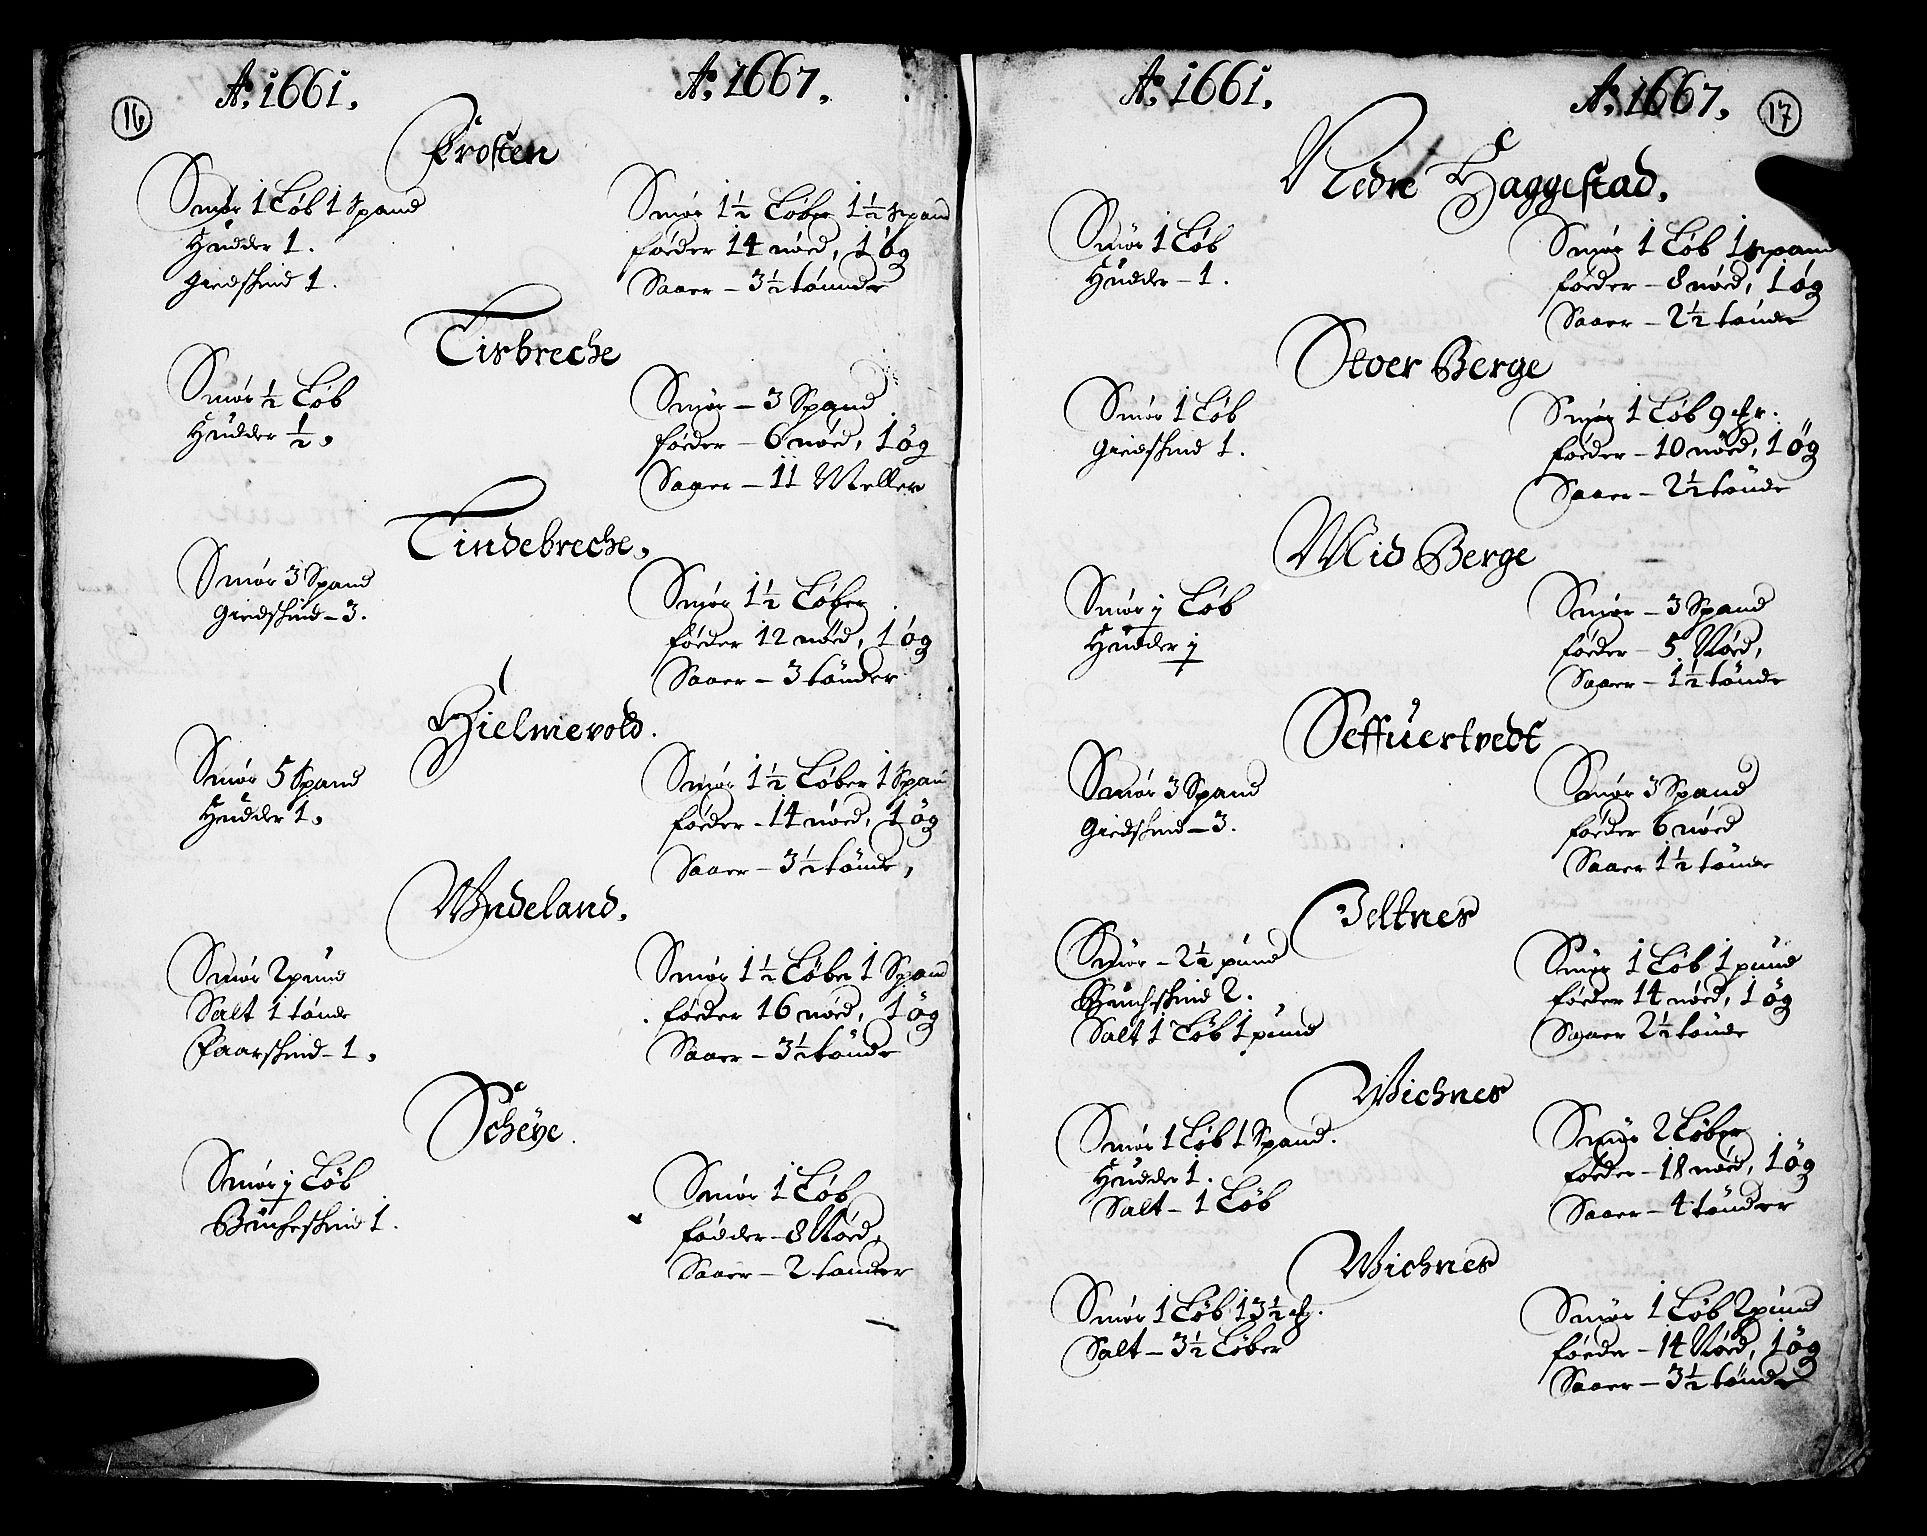 16
Ao. 1661. Ao. 1667.
Prosten
Smør 1 Løb 1 Spand
Hudder 1.
Giedskind 1.
Smør 1½ Løber 1½ Spand
føeder 14 nöed, 1 ög
Saaer – 3½ tönnde
Tisbreche
Smør ½ Løb
Hudder ½.
Smør – 3 Spand
föeder – 6 nöed, 1 ög
Saaer – 11 Meller
Tindebreche.
Smör 3 Spand
Giedskind – 3.
Smör 1½ Løber
föeder 12 nöed, 1 ög
Saaer – 3 tönder
Hielmevold.
Smör 5 Spand
Hudder 1.
Smör 1½ Løber 1 Span
föeder – 14 nöed, 1 ög
Saaer – 3½ tönde,
Wndeland.
Smör 2 pund
Salt 1 tönde
Faarskind – 1.
Smör 1½ Løber 1 Spand
föeder 16 nöed, 1 ög
Saaer – 3½ tönde
Scheye.
Smör j Løb
Buckeskind 1.
Smör 1 Løb
födder – 8 Nöed,
Saaer – 2 tønder
17
Ao. 1661. Ao. 1667.
Nedre Haggestad.
Smör 1 Løb
Hudder – 1.
Smør 1 Løb 1 spand
föeder – 8 nöed, 1 øg
Saaer – 2½ tønde
Stoer Berge
Smör 1 Løb
Giedskind 1.
Smør 1 Løb 9 mr.
föeder – 10 nöed, 1 ög
Saaer – 2½ tönde
Mid Berge
Smör j Løb
Hudder j
Smör – 3 Spand
föeder – 5 Nöed,
Saaer – 1½ tönde
Seffuertvedt
Smör 3 Spand
Giedskind – 3.
Smör 3 Spand
föeder 6 nöed
Saaer 1½ tönde
Jeltnes
Smör – 2½ pund
Buckskind 2.
Salt 1 Løb 1 pund
Smör 1 Løb 1 pund
föeder 14 nöed, 1 ög
Saaer 2½ tönde
Wichnes
Smör 1 Løb 1 Spand.
Hudder 1.
Salt – 1 Løb
Smör 2 Løber
föeder – 18 nöed, 1 ög
Saaer – 4 tönder
Wichnes
Smör 1 Løb 13½ mr.
Salt – 3½ Løber
Smör 1 Løb 2 pund
föeder – 14 Nöed, 1 ög
Saaer – 3½ tönde